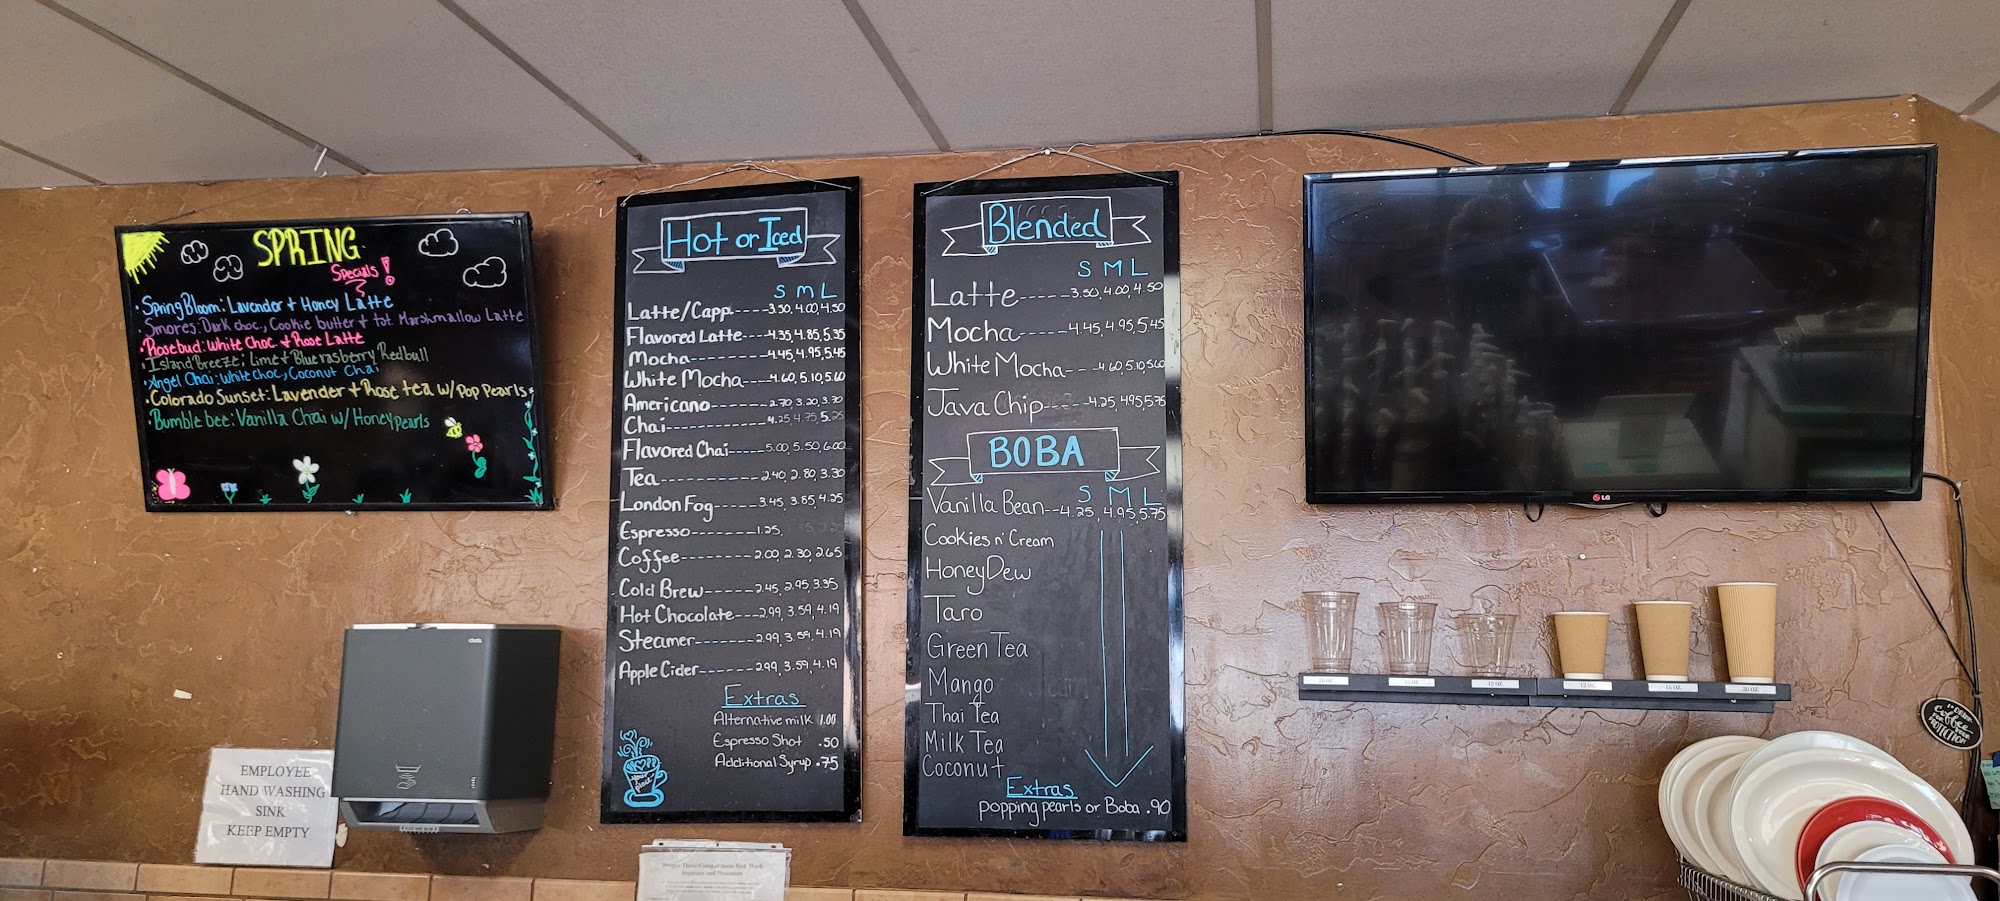 SPRING
Specials!
• Spring Bloom: Lavender + Honey Latte
• Smores: Dark choc., Cookie butter + tst. Marshmallow Latte
• Rosebud: White Choc + Rose Latte
• Island Breeze: Lime + Blue rasberry Redbull
• Angel Chai: White choc, Coconut Chai
• Colorado Sunset: Lavender + Rose tea w/ Pop Pearls
• Bumble bee: Vanilla Chai w/ Honey pearls
Hot or Iced
S M L
Latte/Capp.----3.50, 4.00, 4.50
Flavored Latte---4.35, 4.85, 5.35
Mocha---------4.45, 4.95, 5.45
White Mocha---4.60, 5.10, 5.60
Americano------2.70, 3.20, 3.70
Chai-----------4.25, 4.75, 5.25
Flavored Chai----5.00, 5.50, 6.00
Tea-----------2.40, 2.80, 3.30
London Fog-----3.45, 3.85, 4.25
Espresso-------1.25,
Coffee--------2.00, 2.30, 2.65
Cold Brew-----2.45, 2.95, 3.35
Hot Chocolate---2.99, 3.59, 4.19
Steamer-------2.99, 3.59, 4.19
Apple Cider------2.99, 3.59, 4.19
Extras
Alternative milk 1.00
Espresso Shot .50
Additional Syrup .75
your place
Blended
S M L
Latte-----3.50, 4.00, 4.50
Mocha-----4.45, 4.95, 5.45
White Mocha---4.60, 5.10, 5.60
Java Chip-----4.25, 4.95, 5.75
BOBA
S M L
Vanilla Bean--4.25, 4.95, 5.75
Cookies n' Cream
HoneyDew
Taro
Green Tea
Mango
Thai Tea
Milk Tea
Coconut
Extras
popping pearls or Boba .90
LG
12 OZ.
12 OZ.
16 OZ.
20 OZ.
EMPLOYEE
HAND WASHING
SINK
KEEP EMPTY